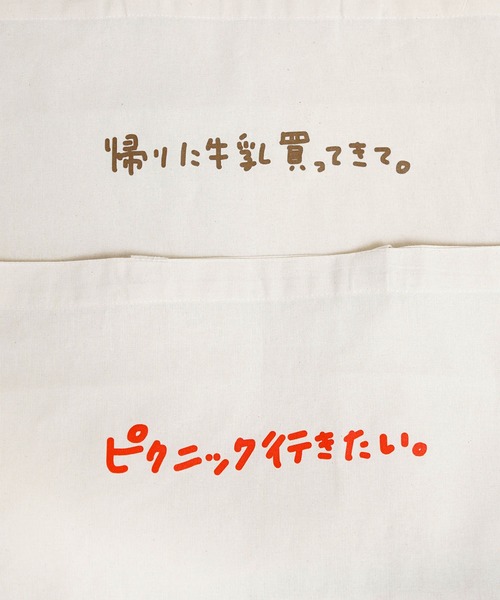 帰りに牛乳買ってきて。
ピクニック行きたい。